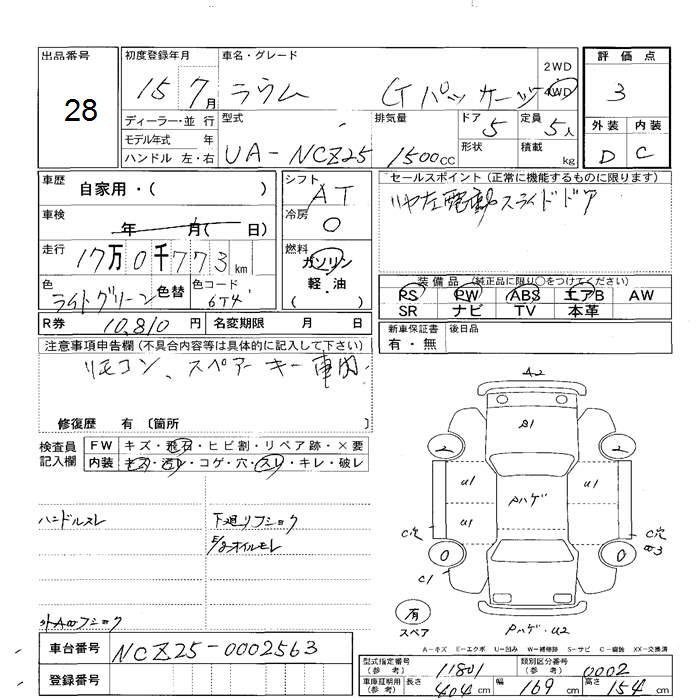 出品番号
28
初度登録年月
15 7月
車名・グレード
ラウム Gパッケージ
2WD
4WD
評価点
3
外装 内装
D C
ディーラー・並行
モデル年式 年
ハンドル 左・右
型式
UA-NCZ25
排気量
1500cc
ドア 5
形状
定員 5人
積載 kg
車歴
自家用・( )
車検
年 月( 日)
走行
17万0千773km
色
ライトグリーン
色替
色コード
6T4
シフト
AT
冷房
燃料
ガソリン
軽油
( )
セールスポイント (正常に機能するものに限ります)
リヤ左電動スライドドア
装備品 (純正品に限り○をつけてください)
PS PW ABS エアB AW
SR ナビ TV 本革
R券 10,810円
名変期限 月 日
新車保証書
有・無
後日品
注意事項申告欄 (不具合内容等は具体的に記入して下さい)
リモコン、スペアーキー車内
修復歴 有 〔箇所
検査員
記入欄
FW キズ・飛石・ヒビ割・リペア跡・×要
内装 キズ・汚レ・コゲ・穴・スレ・キレ・破レ
ハンドルスレ
下廻リフショク
E/gオイルモレ
外Aωフショク
A2
B1
2 2
U1 U1
U1
Pハゲ
C穴 C穴
0 0
C1
有
スペア
Pハゲ・U2
A-キズ E-エクボ U-凹み W-補修跡 S-サビ C-腐蝕 XX-交換済
車台番号
NCZ25-0002563
登録番号
型式指定番号
(参考)
11801
類別区分番号
(参考)
0002
車庫証明用
(参考)
長さ 404cm 幅 169cm 高さ 154cm